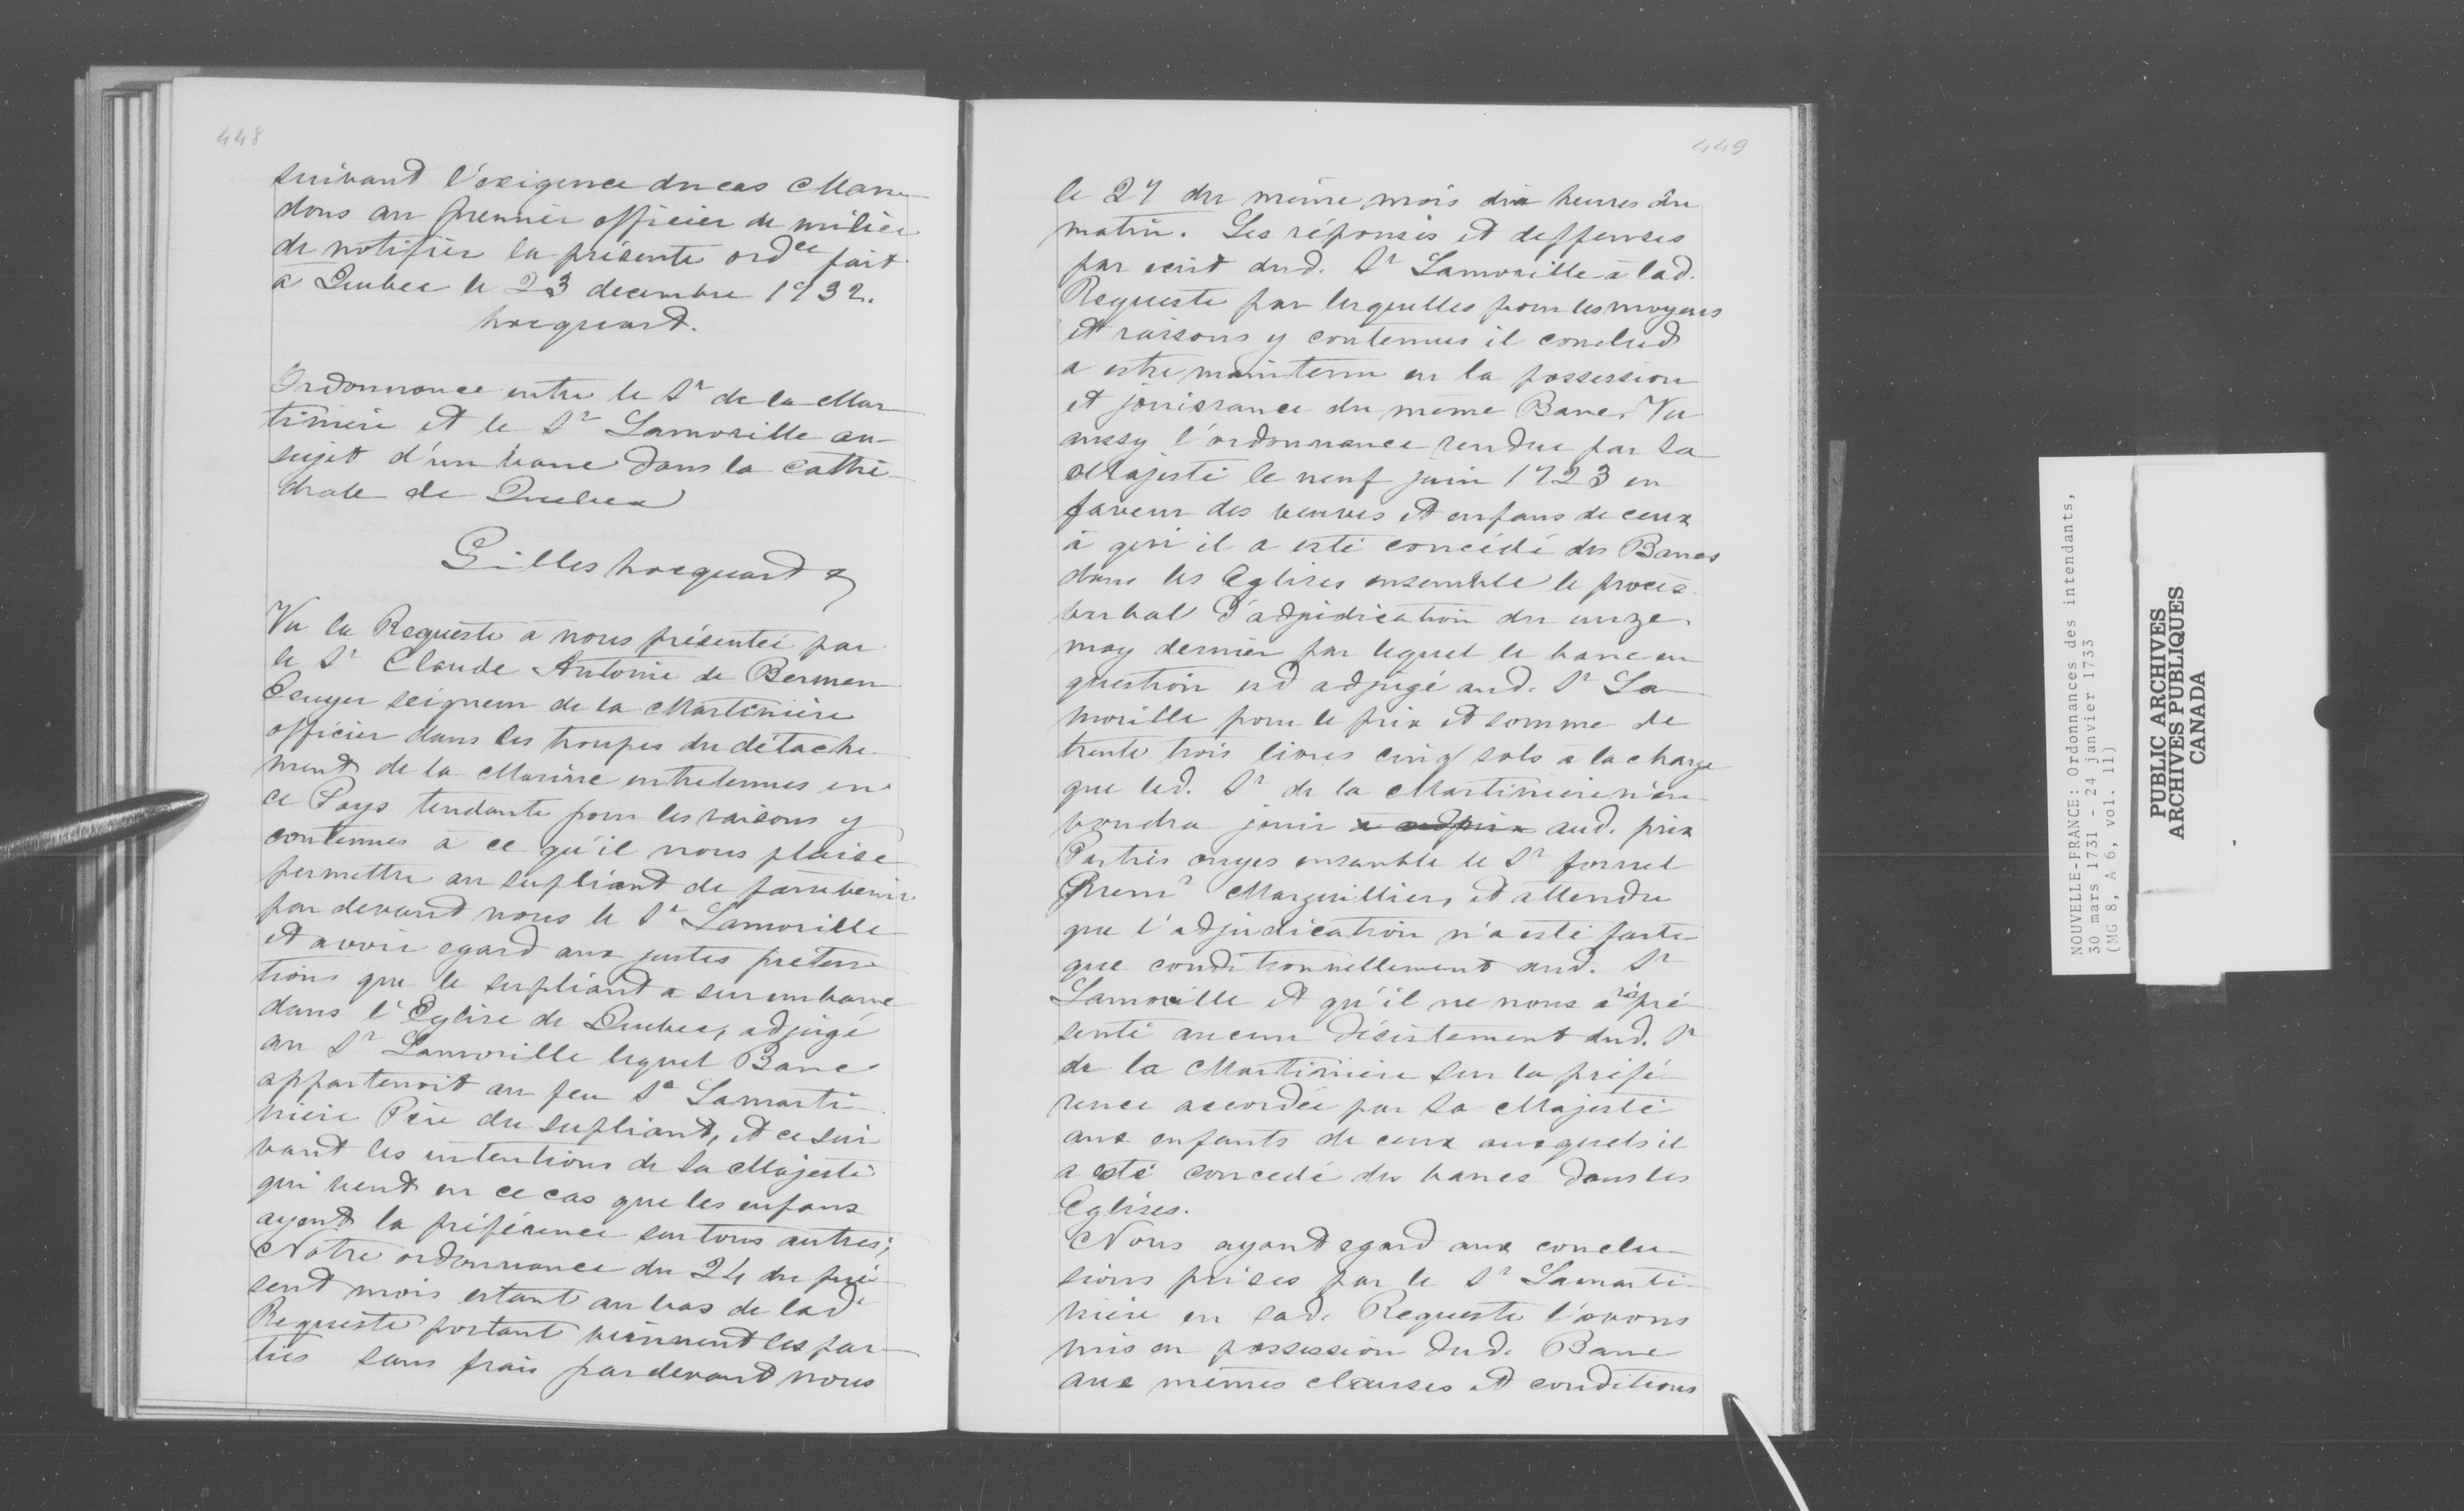 448
suivant l'exigence du cas Man-
dons au premier officier de milice
de notifier la présente ordce fait
a Quebec le 23 decembre 1732.
hocquart.
Ordonnance entre le Sr de la Mar-
tiniere et le Sr Lamorille au
sujet d'un banc dans la Cathé-
drale de Quebec
Gilles hocquart &
Vu la Requeste a nous présentée par
le Sr Claude Antoine de Bermen
Ecuyer seigneur de la Martiniere
officier dans les troupes du détache-
ment de la Marine entretenues en
ce Pays tendante pour les raisons y
contenues a ce qu'il nous plaise
permettre au supliant de faire venir
par devant nous le Sr Lamorille
et avoir egard aux justes preten-
tions que le supliant a sur un banc
dans l'Eglise de Quebec, adjugé
au Sr Lamorille lequel Banc
appartenoit au feu Sr Lamarti-
niere Père du supliant, et ce sui-
vant les intentions de Sa Majesté
qui veut en ce cas que les enfans
ayent la préférence sur tous autres;
Notre ordonnance du 24 du pré-
sent mois estant au bas de lade
Requeste portant viennent les par-
ties sans frais pardevant nous
449
le 27 du même mois dix heures du
matin. Les réponses et deffenses
par ecrit dud. Sr Lamorille à lad.
Requeste par lesquelles pour les moyens
et raisons y contenues il conclud
a estre maintenu en la possession
et jouissance du meme Banc. Vu
aussy l'ordonnance rendue par Sa
Majesté le neuf juin 1723 en
faveur des veuves et enfans de ceux
à qui il a esté concédé des Bancs
dans les Eglises ensemble le procès
verbal d'adjudication du unze
may dernier par lequel le banc en
question est adjugé aud. Sr La
morille pour le prix et somme de
trente trois livres cinq sols a la charge
que led. Sr de la Martiniere n'en
voudra jouir aud. prix
Parties ouyes ensemble le Sr fornel
Premr Marguillier, et attendu
que l'adjudication n'a esté faite
que conditionnellement aud. Sr
Lamorille et qu'il ne nous a répré-
senté aucun désistement dud. Sr
de la Martiniere sur la préfé-
rence accordée par Sa Majesté
aux enfants de ceux auxquels il
a esté concedé des bancs dans les
Eglises.
Nous ayant egard aux conclu-
sions prises par le Sr Lamarti-
niere en sad. Requeste l'avons
mis en possession dud. Banc
aux mêmes clauses et conditions
NOUVELLE-FRANCE: Ordonnances des intendants,
30 mars 1731 - 24 janvier 1733
(MG 8, A 6, vol. 11)
PUBLIC ARCHIVES
ARCHIVES PUBLIQUES
CANADA